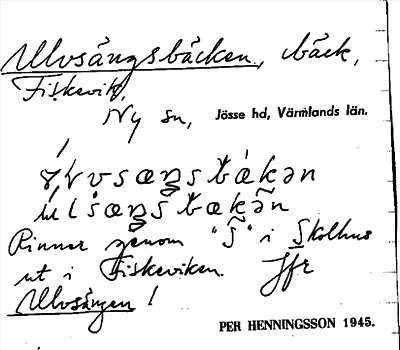 Ulvsångsbäcken, bäck,
Fiskevik,
Ny sn, Jösse hd, Värmlands län.
Rinner genom "S" i Skolhus
ut i Fiskeviken. Jfr
Ulvsången!
PER HENNINGSSON 1945.